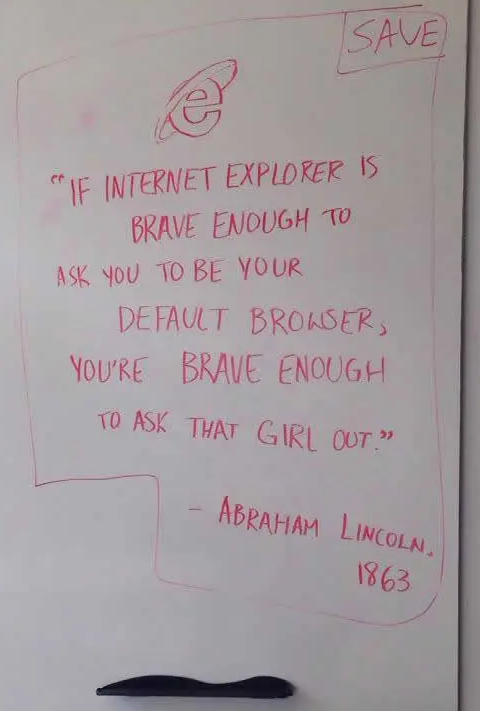 SAVE
"IF INTERNET EXPLORER IS
BRAVE ENOUGH TO
ASK YOU TO BE YOUR
DEFAULT BROWSER,
YOU'RE BRAVE ENOUGH
TO ASK THAT GIRL OUT."
- ABRAHAM LINCOLN.
1863